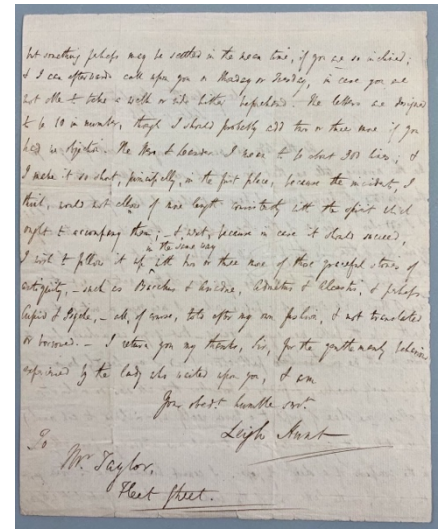 but something perhaps may be settled in the mean time, if you are so inclined;
& I can afterwards call upon you on Monday or Tuesday, in case you are
not able to take a walk or ride hither beforehand. The letters are designed
to be 10 in number, though I should probably add two or three more if you
had no objection. The Hero & Leander I mean to be about 300 lines; &
I make it so short, principally, in the first place, because the incidents, I
think, would not allow of more length consistently with the spirit which
ought to accompany them; – & next, because in case it should succeed,
in the same way
I wish to follow it up with two or three more of those graceful stories of
antiquity, – such as Bacchus & Ariadne, Admetus & Alcestis, & perhaps
Cupid & Psyche, – all, of course, told after my own fashion, & not translated
or borrowed. – I return you my thanks, Sir, for the gentlemanly behaviour
experienced by the lady who waited upon you, & am
Your obedt. humble servt.
Leigh Hunt
To
Mr. Taylor,
Fleet Street.